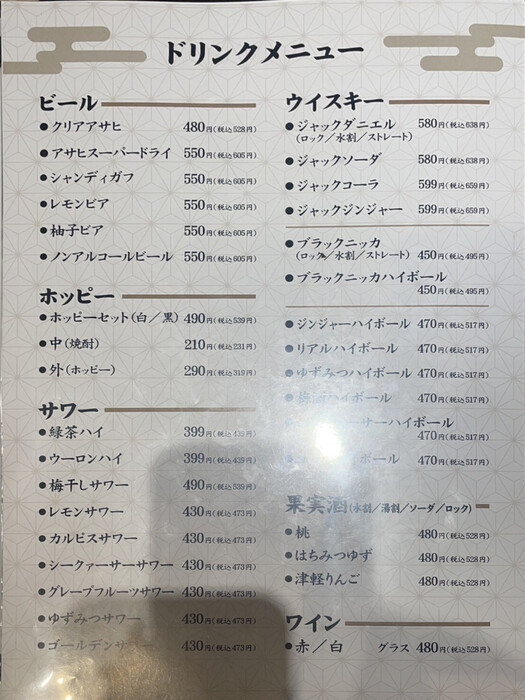 ドリンクメニュー
ビール
●クリアアサヒ 480円(税込528円)
●アサヒスーパードライ 550円(税込605円)
●シャンディガフ 550円(税込605円)
●レモンビア 550円(税込605円)
●柚子ビア 550円(税込605円)
●ノンアルコールビール 550円(税込605円)
ホッピー
●ホッピーセット(白/黒) 490円(税込539円)
●中(焼酎) 210円(税込231円)
●外(ホッピー) 290円(税込319円)
サワー
●緑茶ハイ 399円(税込439円)
●ウーロンハイ 399円(税込439円)
●梅干しサワー 490円(税込539円)
●レモンサワー 430円(税込473円)
●カルピスサワー 430円(税込473円)
●シークァーサーサワー 430円(税込473円)
●グレープフルーツサワー 430円(税込473円)
●ゆずみつサワー 430円(税込473円)
●ゴールデンサワー 430円(税込473円)
ウイスキー
●ジャックダニエル 580円(税込638円)
(ロック/水割/ストレート)
●ジャックソーダ 580円(税込638円)
●ジャックコーラ 599円(税込659円)
●ジャックジンジャー 599円(税込659円)
●ブラックニッカ
(ロック/水割/ストレート) 450円(税込495円)
●ブラックニッカハイボール
450円(税込495円)
●ジンジャーハイボール 470円(税込517円)
●リアルハイボール 470円(税込517円)
●ゆずみつハイボール 470円(税込517円)
●梅酒ハイボール 470円(税込517円)
ーサーハイボール
470円(税込517円)
ボール 470円(税込517円)
果実酒(水割/湯割/ソーダ/ロック)
●桃 480円(税込528円)
●はちみつゆず 480円(税込528円)
●津軽りんご 480円(税込528円)
ワイン
●赤/白 グラス 480円(税込528円)